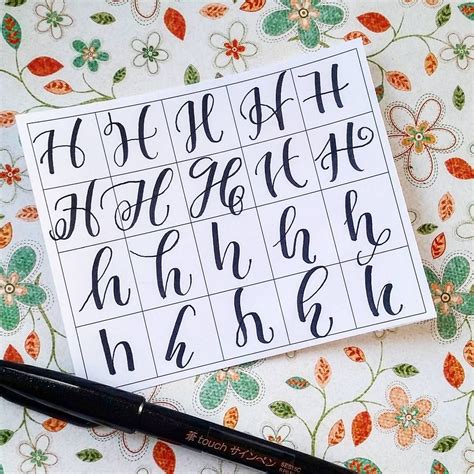 H H H H H
H H H H H
h h h h h
h h h h h
筆touch サインペン